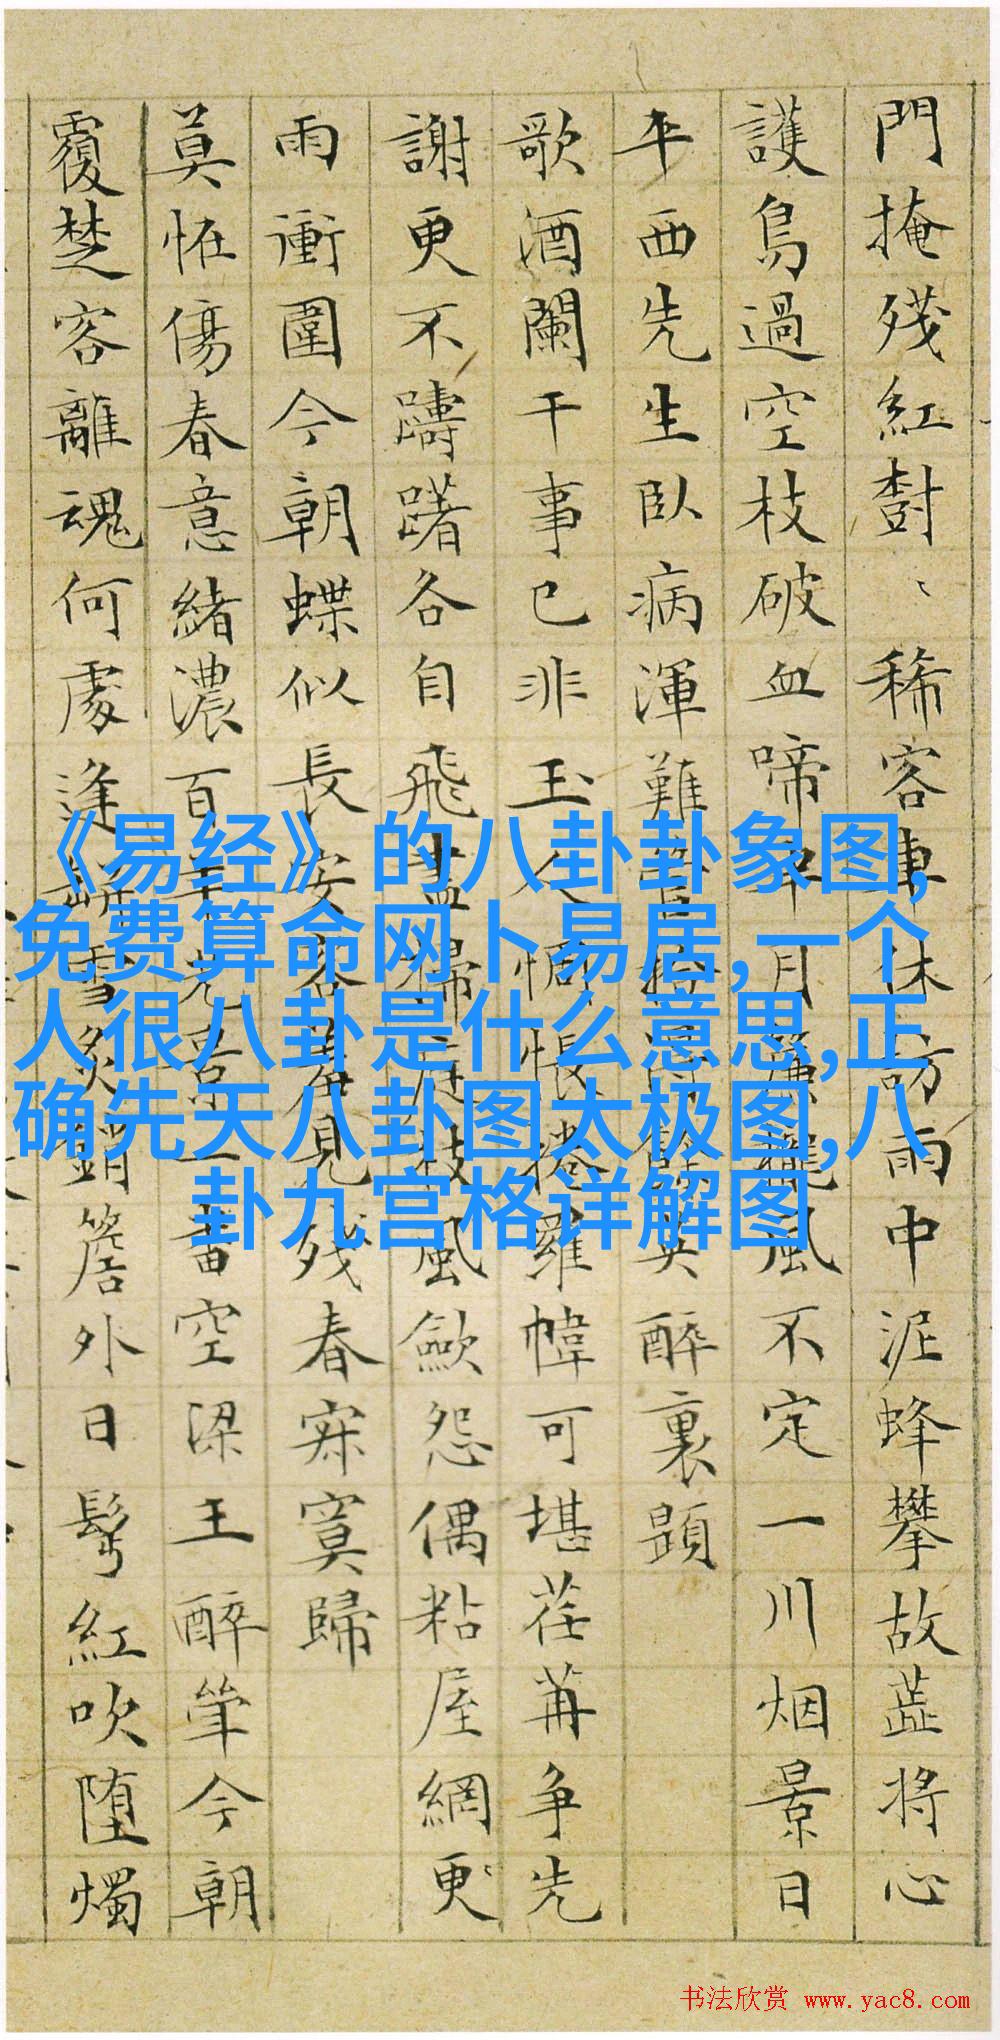 門掩殘紅樹〻稀客車休訪雨中泥蜂攀故蕋將心
護鳥過空枝破血啼月簾櫳風不定一川烟景日
平西先生臥病渾難拾得餘英醉裏題
歌酒闌干事已非玉人惆悵捲羅幃可堪荏苒爭先
謝更不躊躇各自飛盡歸庭枝風歛怨偶粘屋網更
雨衝圍今朝蝶似長安客羞見殘春寂寞歸
莫怪傷春意緒濃百年光景一番空梁王醉筆今朝
覆楚客離魂何處逢雪銷簷外日髩紅吹墮燭
《易经》的八卦卦象图,
免费算命网卜易居,一个
人很八卦是什么意思,正
确先天八卦图太极图,八
卦九宫格详解图
书法欣赏 www.yac8.com